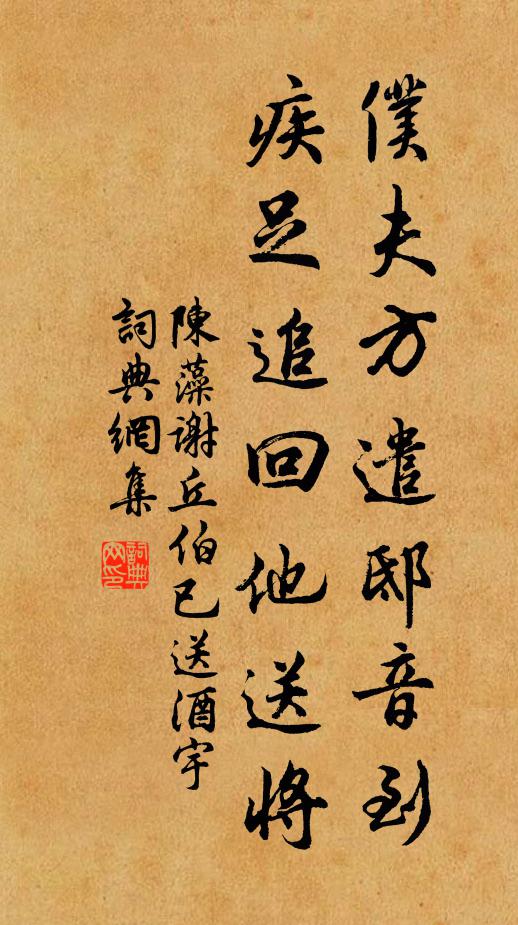 僕夫方遣邸音到
疾足追回他送將
陳藻謝丘伯已送酒宇
詞典網集
詞典
网印